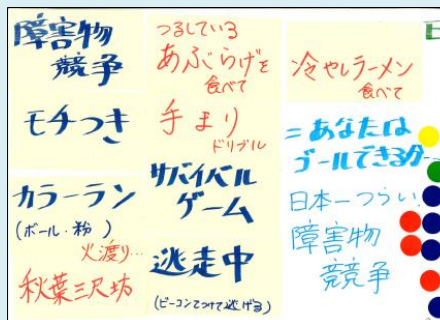 障害物
競争
モチつき
カラーラン
(ボール・粉)
火渡り…
秋葉三尺坊
つるしている
あぶらげを
食べて
手まり
ドリブル
サバイバル
ゲーム
逃走中
(ビーコンつけて逃げる)
冷やしラーメン
食べて
=あなたは
ゴールできるか…
日本一つらい
障害物
競争